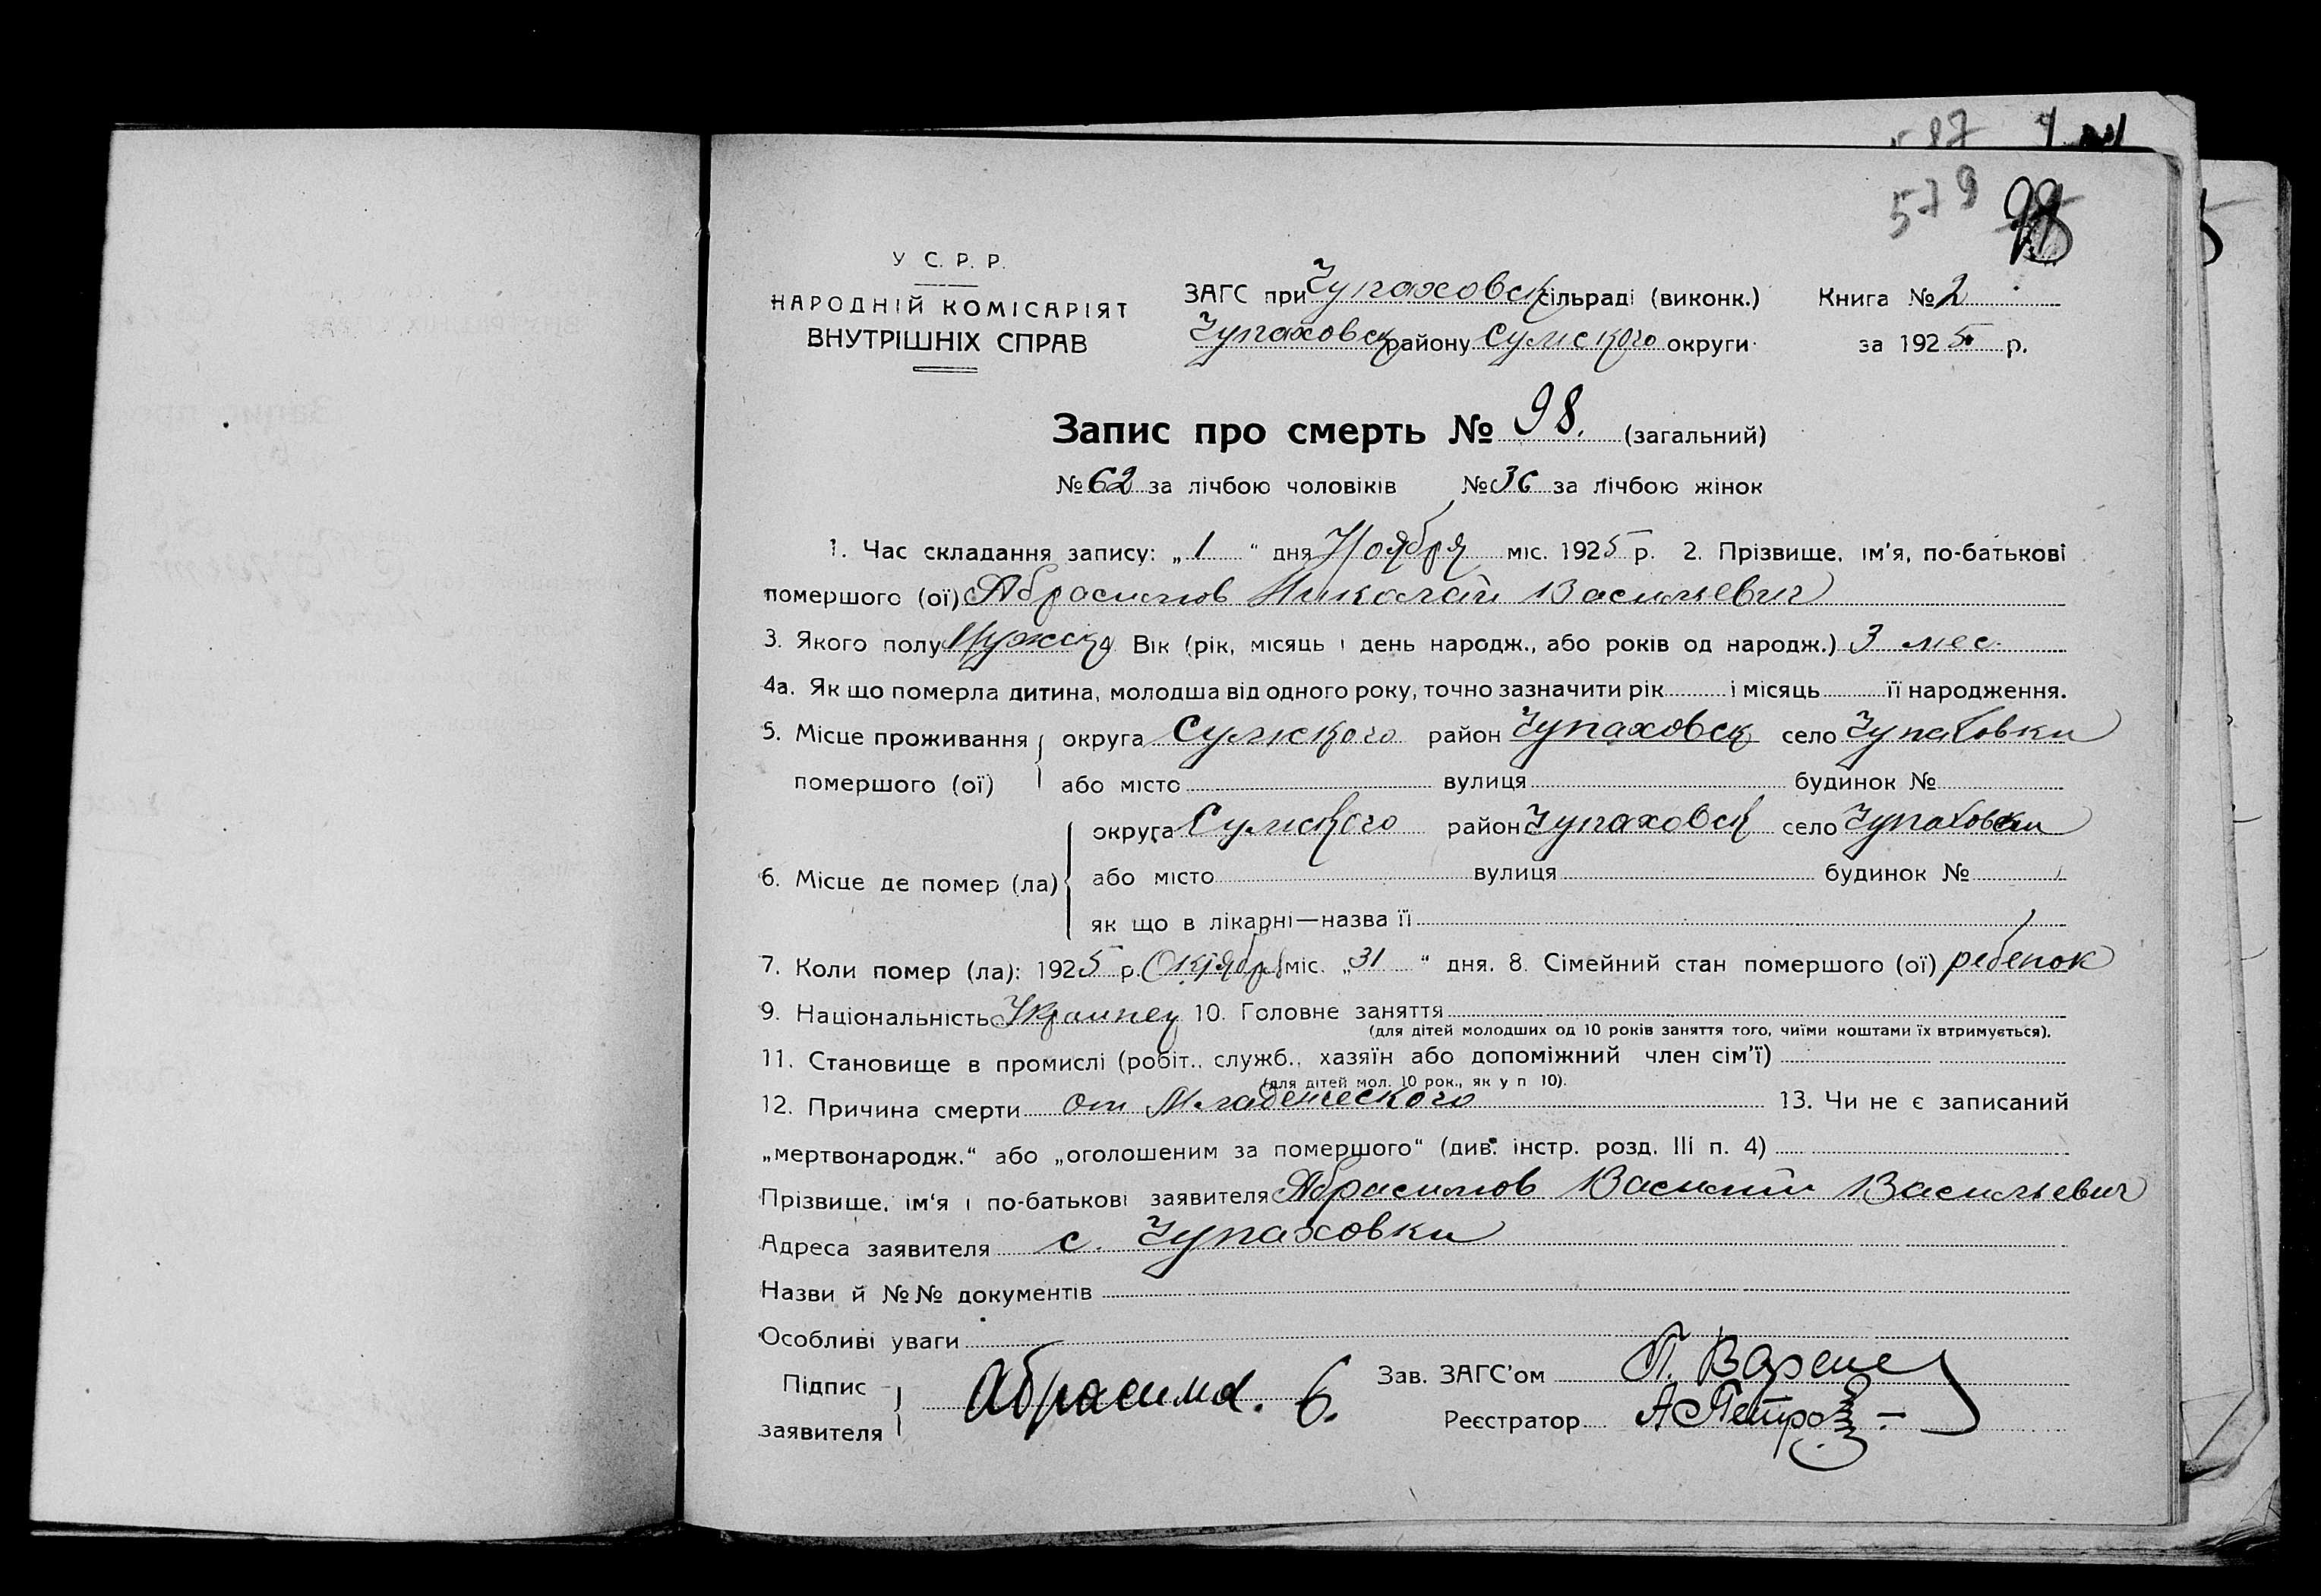 587
579 98
У С. Р. Р.
НАРОДНІЙ КОМІСАРІЯТ
ВНУТРІШНІХ СПРАВ
ЗАГС при Чупаховск сільраді (виконк.) Книга № 2
Чупаховск району Сумского округи за 1925 р.
Запис про смерть № 98. (загальний)
№ 62 за лічбою чоловіків № 36 за лічбою жінок
1. Час складання запису: „1“ дня Ноября міс. 1925 р. 2. Прізвище, ім’я, по-батькові
помершого (ої) Абрасимов Николай Васильевич
3. Якого полу Мужск 4 Вік (рік, місяць і день народж., або років од народж.) 3 мес.
4а. Як що померла дитина, молодша від одного року, точно зазначити рік і місяць її народження.
5. Місце проживання округа Сумского район Чупаховск село Чупаховки
помершого (ої) або місто вулиця будинок №
округа Сумского район Чупаховск село Чупаховки
6. Місце де помер (ла) або місто вулиця будинок №
як що в лікарні—назва її
7. Коли помер (ла): 1925 р. Октября міс. „31“ дня. 8. Сімейний стан помершого (ої) ребенок
9. Національність Украинец 10. Головне заняття
(для дітей молодших од 10 років заняття того, чиїми коштами їх втримується).
11. Становище в промислі (робіт., служб., хазяїн або допоміжний член сім’ї)
(для дітей мол. 10 рок., як у п 10).
12. Причина смерти от Младенческого 13. Чи не є записаний
„мертвонародж.“ або „оголошеним за помершого“ (див. інстр. розд. III п. 4)
Прізвище, ім‘я і по-батькові заявителя Абрасимов Василий Васильевич
Адреса заявителя с. Чупаховки
Назви й №№ документів
Особливі уваги
Підпис Абрасимов. В. Зав. ЗАГС’ом П.
заявителя Реєстратор А Петров